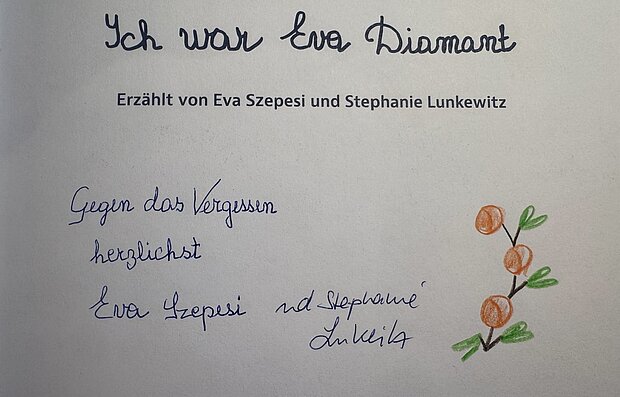 Ich war Eva Diamant
Erzählt von Eva Szepesi und Stephanie Lunkewitz
Gegen das Vergessen
herzlichst
Eva Szepesi und Stephanie
Lunkewitz